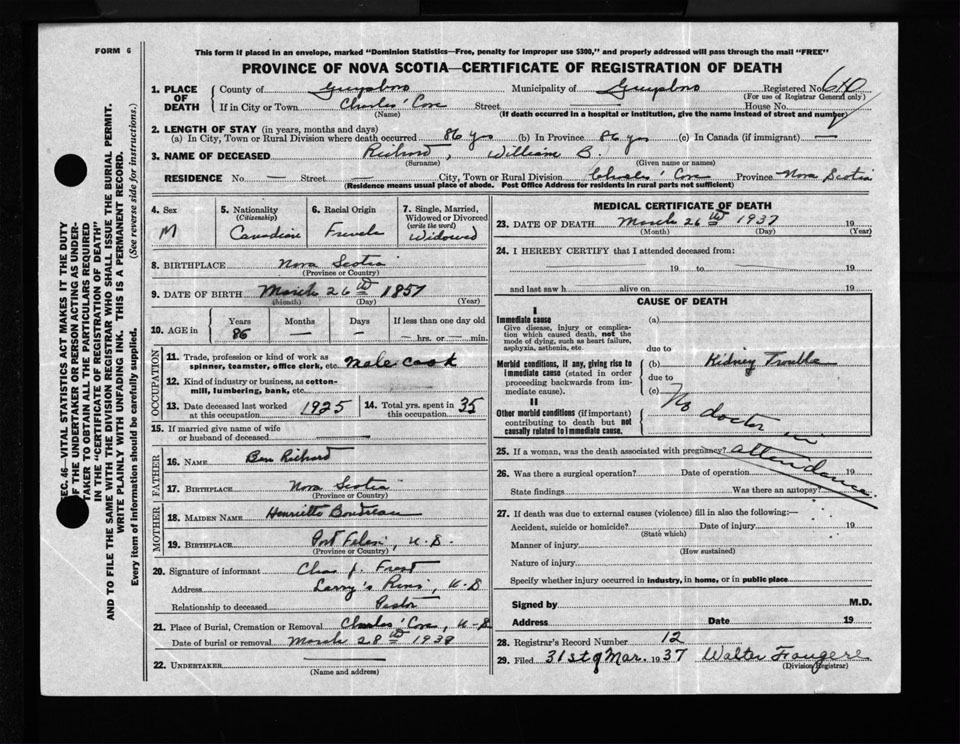 FORM 6
This form if placed in an envelope, marked "Dominion Statistics—Free, penalty for improper use $300," and properly addressed will pass through the mail "FREE"
PROVINCE OF NOVA SCOTIA—CERTIFICATE OF REGISTRATION OF DEATH
1. PLACE OF DEATH County of Guysboro Municipality of Guysboro Registered No. 640
(For use of Registrar General only)
If in City or Town Charles' Cove Street House No.
(Name) (If death occurred in a hospital or institution, give the name instead of street and number)
2. LENGTH OF STAY (in years, months and days)
(a) In City, Town or Rural Division where death occurred 86 yrs (b) In Province 86 yrs (c) In Canada (if immigrant) —
3. NAME OF DECEASED Richard, William B.
(Surname) (Given name or names)
RESIDENCE No. — Street — City, Town or Rural Division Charles' Cove Province Nova Scotia
(Residence means usual place of abode. Post Office Address for residents in rural parts not sufficient)
SEC. 46—VITAL STATISTICS ACT MAKES IT THE DUTY
OF THE UNDERTAKER OR PERSON ACTING AS UNDER-
TAKER TO OBTAIN ALL THE PARTICULARS REQUIRED
IN THE "CERTIFICATE OF REGISTRATION OF DEATH"
AND TO FILE THE SAME WITH THE DIVISION REGISTRAR WHO SHALL ISSUE THE BURIAL PERMIT.
WRITE PLAINLY WITH UNFADING INK. THIS IS A PERMANENT RECORD.
Every item of information should be carefully supplied. (See reverse side for instructions.)
4. Sex M
5. Nationality (Citizenship) Canadian
6. Racial Origin French
7. Single, Married, Widowed or Divorced (write the word) Widowed
8. BIRTHPLACE Nova Scotia
(Province or Country)
9. DATE OF BIRTH March 26th 1851
(Month) (Day) (Year)
10. AGE in Years 86 Months — Days — If less than one day old — hrs. or — min.
OCCUPATION
11. Trade, profession or kind of work as spinner, teamster, office clerk, etc. Male Cook
12. Kind of industry or business, as cotton-mill, lumbering, bank, etc.
13. Date deceased last worked at this occupation 1925
14. Total yrs. spent in this occupation 35
15. If married give name of wife or husband of deceased
FATHER
16. NAME Ben Richard
17. BIRTHPLACE Nova Scotia
(Province or Country)
MOTHER
18. MAIDEN NAME Henrietta Boudreau
19. BIRTHPLACE Port Felix, N.S.
(Province or Country)
20. Signature of informant Chas J. Forest
Address Larry's River, N.S
Relationship to deceased Pastor
21. Place of Burial, Cremation or Removal Charles' Cove, N.S
Date of burial or removal March 28th 1938
22. UNDERTAKER
(Name and address)
MEDICAL CERTIFICATE OF DEATH
23. DATE OF DEATH March 26th 1937 19
(Month) (Day) (Year)
24. I HEREBY CERTIFY that I attended deceased from:
19 to 19
and last saw h alive on 19
CAUSE OF DEATH
I
Immediate cause
Give disease, injury or complication which caused death, not the mode of dying, such as heart failure, asphyxia, asthenia, etc.
(a)
due to
Morbid conditions, if any, giving rise to immediate cause (stated in order proceeding backwards from immediate cause).
(b) Kidney Trouble
due to
(c)
II
Other morbid conditions (if important) contributing to death but not causally related to immediate cause.
No doctor in attendance.
25. If a woman, was the death associated with pregnancy?
26. Was there a surgical operation? Date of operation 19
State findings Was there an autopsy?
27. If death was due to external causes (violence) fill in also the following:—
Accident, suicide or homicide? Date of injury 19
(State which)
Manner of injury
(How sustained)
Nature of injury
Specify whether injury occurred in industry, in home, or in public place
Signed by M.D.
Address Date 19
28. Registrar's Record Number 12
29. Filed 31st of Mar. 1937 Walter Fougere
(Division Registrar)